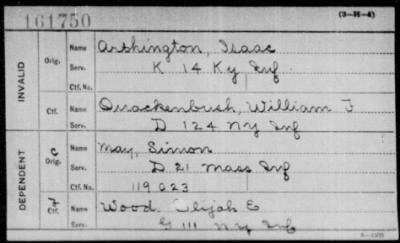 161750
(3-H-4)
INVALID
Orig. Name Arthington, Isaac
Serv. K 14 Ky Inf
Ctf. No.
Ctf. Name Quackenbush, William F
Serv. D 124 NY Inf
DEPENDENT
C Orig. Name May, Simon
Serv. D 21 Mass Inf
Ctf. No. 119023
Ctf. Name Wood, Elijah E
Serv. G 111 NY Inf